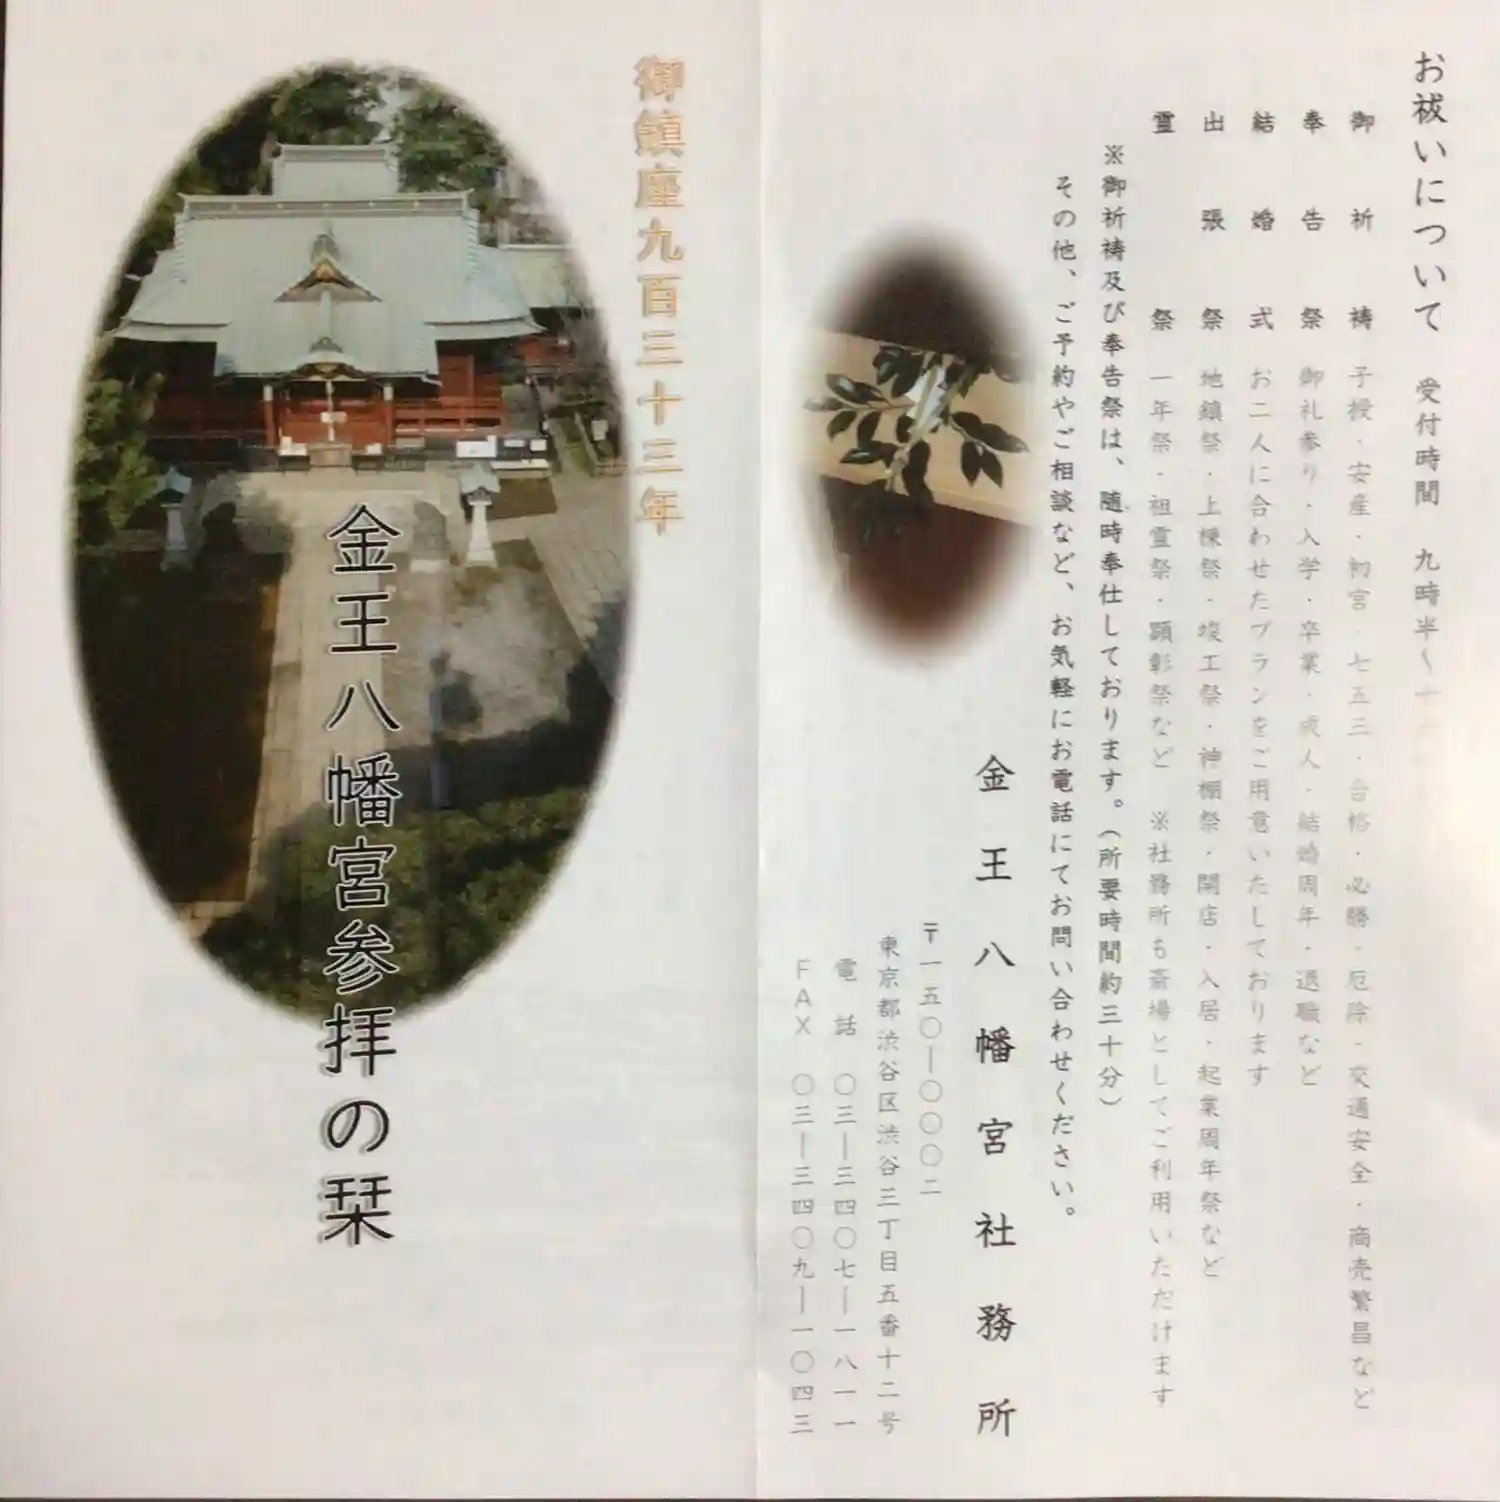 お祓いについて 受付時間 九時半～十
御祈祷 子授・安産・初宮・七五三・合格・必勝・厄除・交通安全・商売繁昌など
奉告祭 御礼参り・入学・卒業・成人・結婚周年・退職など
結婚式 お二人に合わせたプランをご用意いたしております
出張祭 地鎮祭・上棟祭・竣工祭・神棚祭・開店・入居・起業周年祭など
霊祭 一年祭・祖霊祭・顕彰祭など ※社務所も斎場としてご利用いただけます
※御祈祷及び奉告祭は、随時奉仕しております。(所要時間約三十分)
その他、ご予約やご相談など、お気軽にお電話にてお問い合わせください。
金王八幡宮社務所
〒一五〇ー〇〇〇二
東京都渋谷区渋谷三丁目五番十二号
電話 〇三ー三四〇七ー一八一一
FAX 〇三ー三四〇九ー一〇四三
御鎮座九百三十三年
金王八幡宮参拝の栞